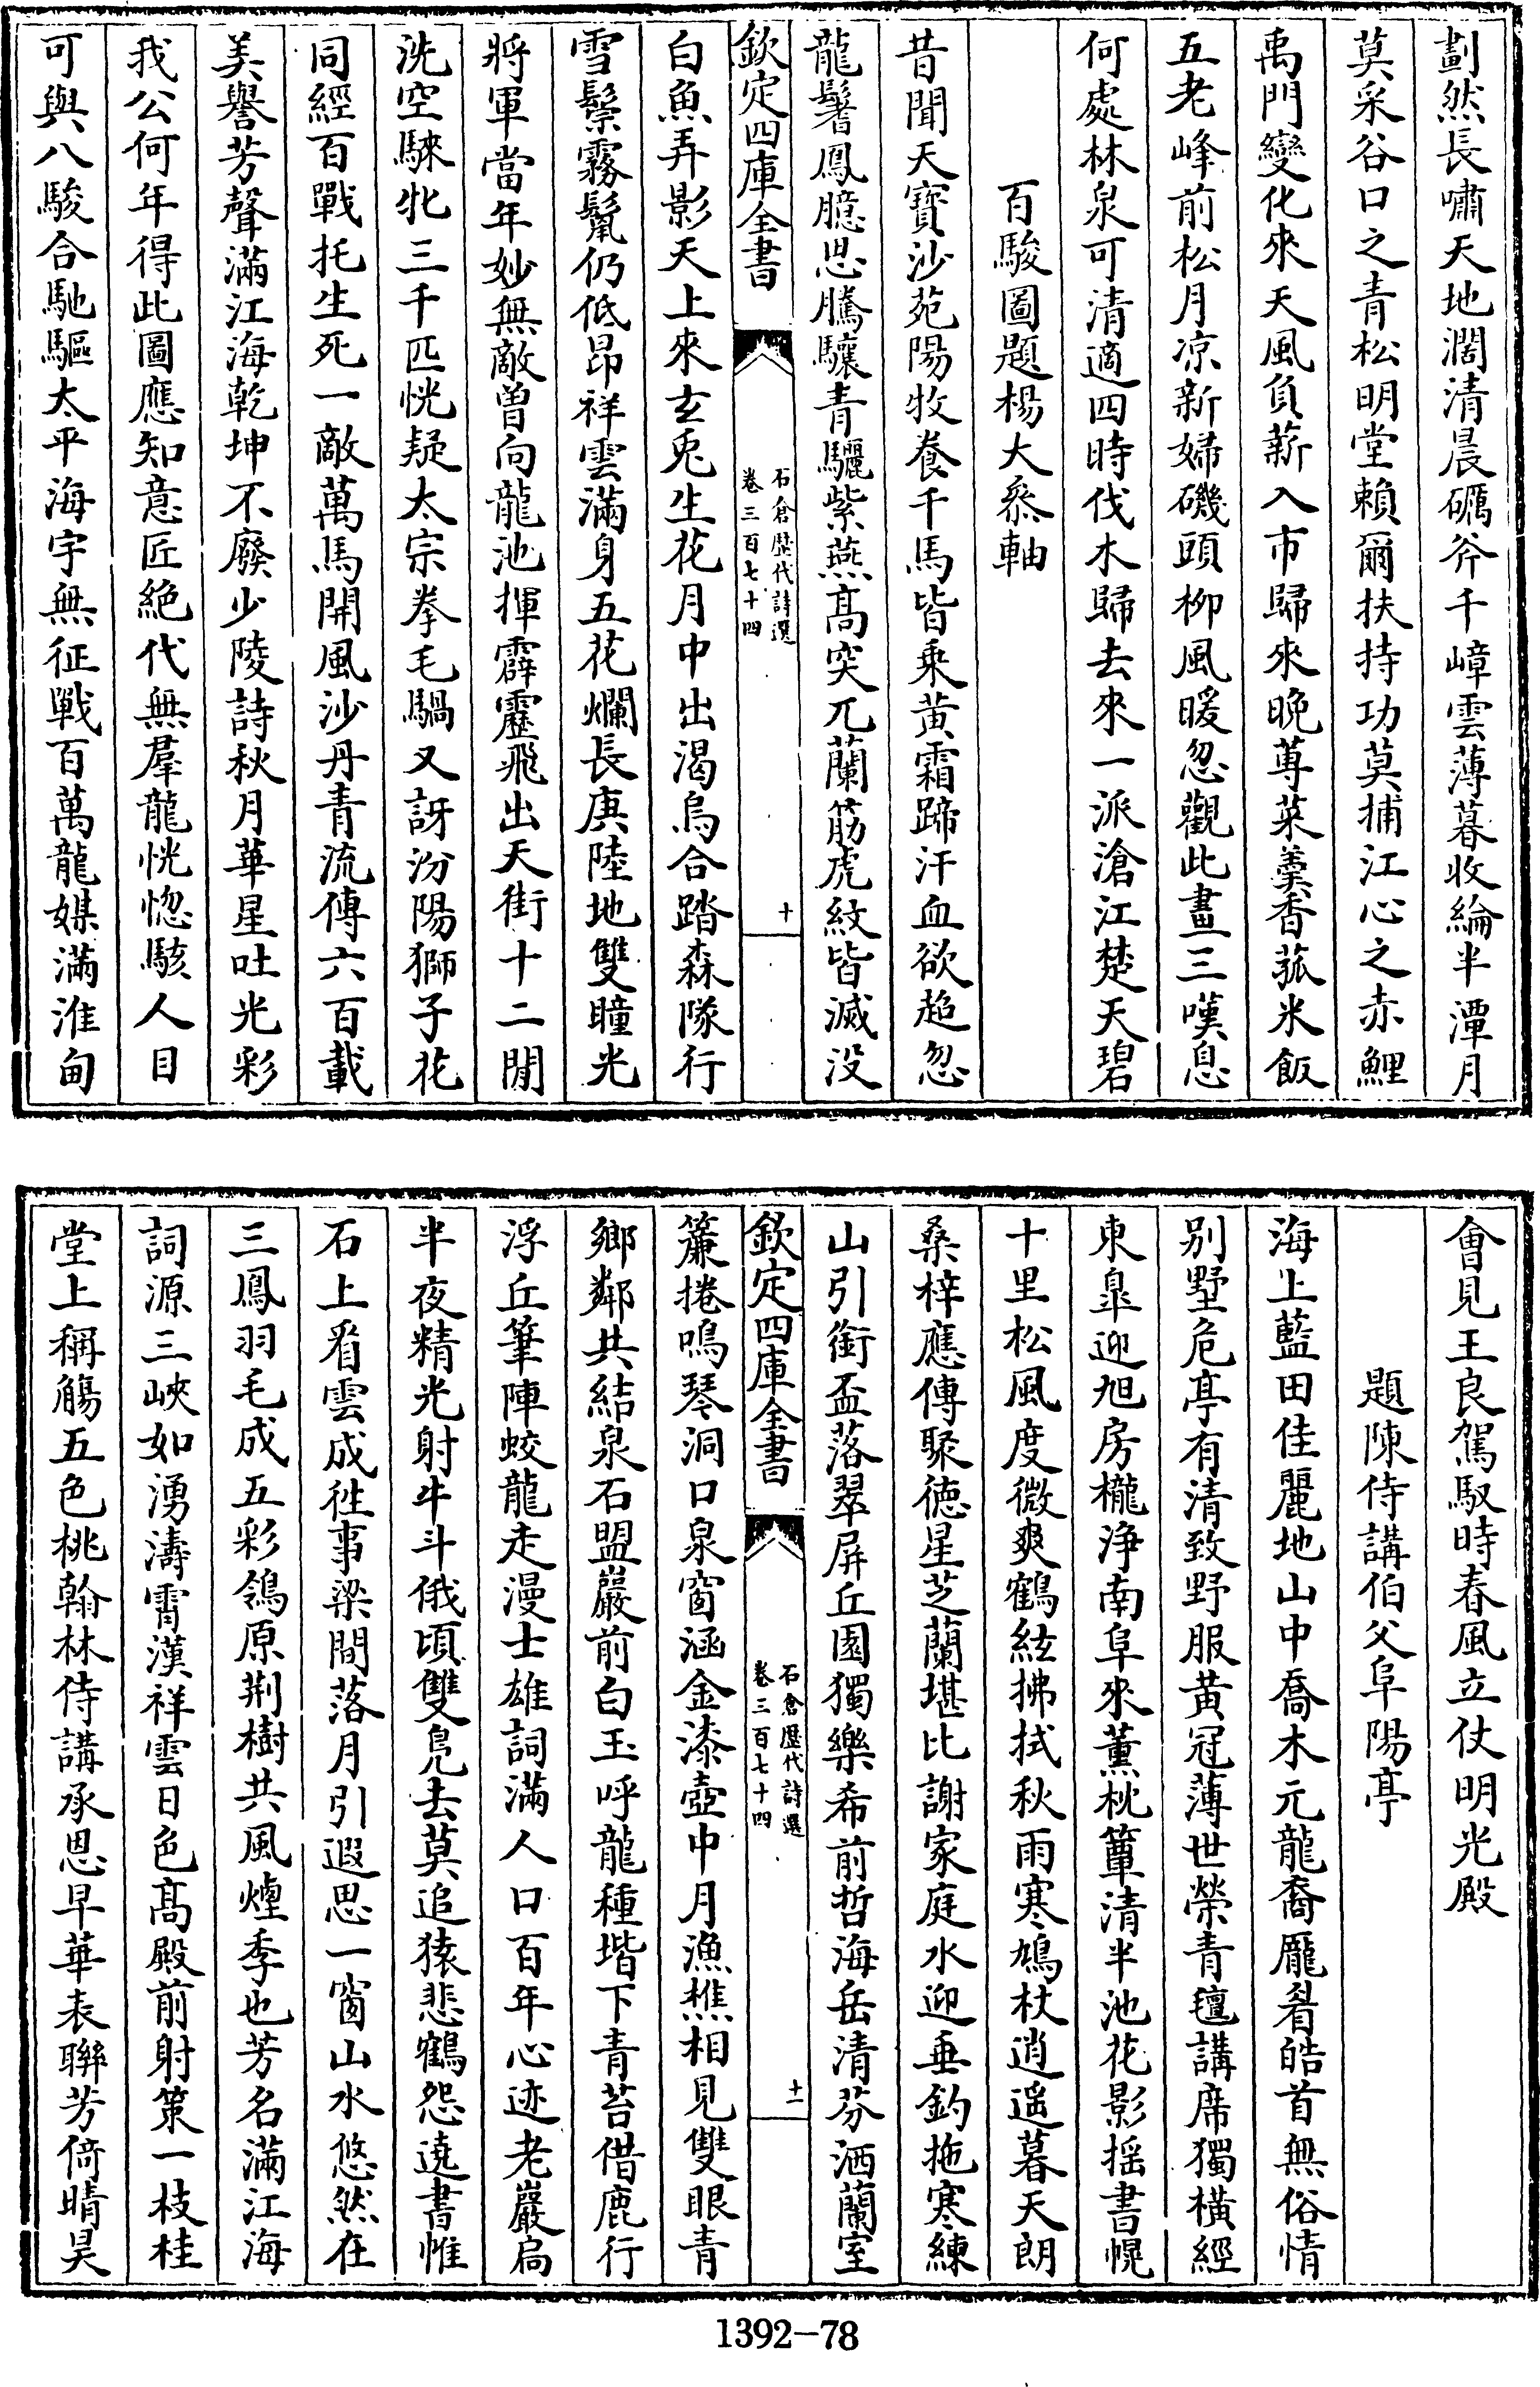 劃然長嘯天地濶清晨礪斧千嶂雲薄暮收綸半潭月
莫采谷口之青松明堂賴爾扶持功莫捕江心之赤鯉
禹門變化來天風負薪入市歸來晩蓴菜羹香菰米飯
五老峰前松月凉新婦磯頭柳風暖忽觀此畫三嘆息
何處林泉可清適四時伐木歸去來一派滄江楚天碧
百駿圖題楊大叅軸
昔聞天寶沙苑陽牧養千馬皆乗黄霜蹄汗血欲超忽
龍鬐鳳臆思騰驤青驪紫燕髙突兀蘭筋虎紋皆滅没
欽定四庫全書
石倉歴代詩選
卷三百七十四
十
白魚弄影天上來玄兎生花月中出渴烏合踏森隊行
雪鬃霧鬣仍低昂祥雲滿身五花爛長庚陸地雙瞳光
將軍當年妙無敵曽向龍池揮霹靂飛出天街十二閒
洗空騋牝三千匹恍疑太宗拳毛騧又訝汾陽獅子花
同經百戰托生死一敵萬馬開風沙丹青流傳六百載
美譽芳聲滿江海乾坤不廢少陵詩秋月華星吐光彩
我公何年得此圖應知意匠絶代無羣龍恍惚駭人目
可與八駿合馳驅太平海宇無征戰百萬龍媒滿淮甸
會見王良駕馭時春風立仗明光殿
題陳侍講伯父阜陽亭
海上藍田佳麗地山中喬木元龍裔厖眉皓首無俗情
别墅危亭有清致野服黄冠薄世榮青氊講席獨横經
東皐迎旭房櫳浄南阜來薫枕簟清半池花影揺書幌
十里松風度微爽鶴絃拂拭秋雨寒鳩杖逍遥暮天朗
桑梓應傳聚徳星芝蘭堪比謝家庭水迎垂釣拖寒練
山引銜盃落翠屏丘園獨樂希前哲海岳清芬洒蘭室
欽定四庫全書
石倉歴代詩選
卷三百七十四
十一
簾捲鳴琴洞口泉窗涵金漆壺中月漁樵相見雙眼青
鄉鄰共結泉石盟巖前白玉呼龍種堦下青苔借鹿行
浮丘筆陣蛟龍走漫士雄詞滿人口百年心迹老巖扃
半夜精光射牛斗俄頃雙鳬去莫追猿悲鶴怨遶書帷
石上看雲成徃事梁間落月引遐思一窗山水悠然在
三鳳羽毛成五彩鴒原荆樹共風煙季也芳名滿江海
詞源三峽如湧濤霄漢祥雲日色髙殿前射策一枝桂
堂上稱觴五色桃翰林侍講承恩早華表聯芳倚晴昊
1392-78